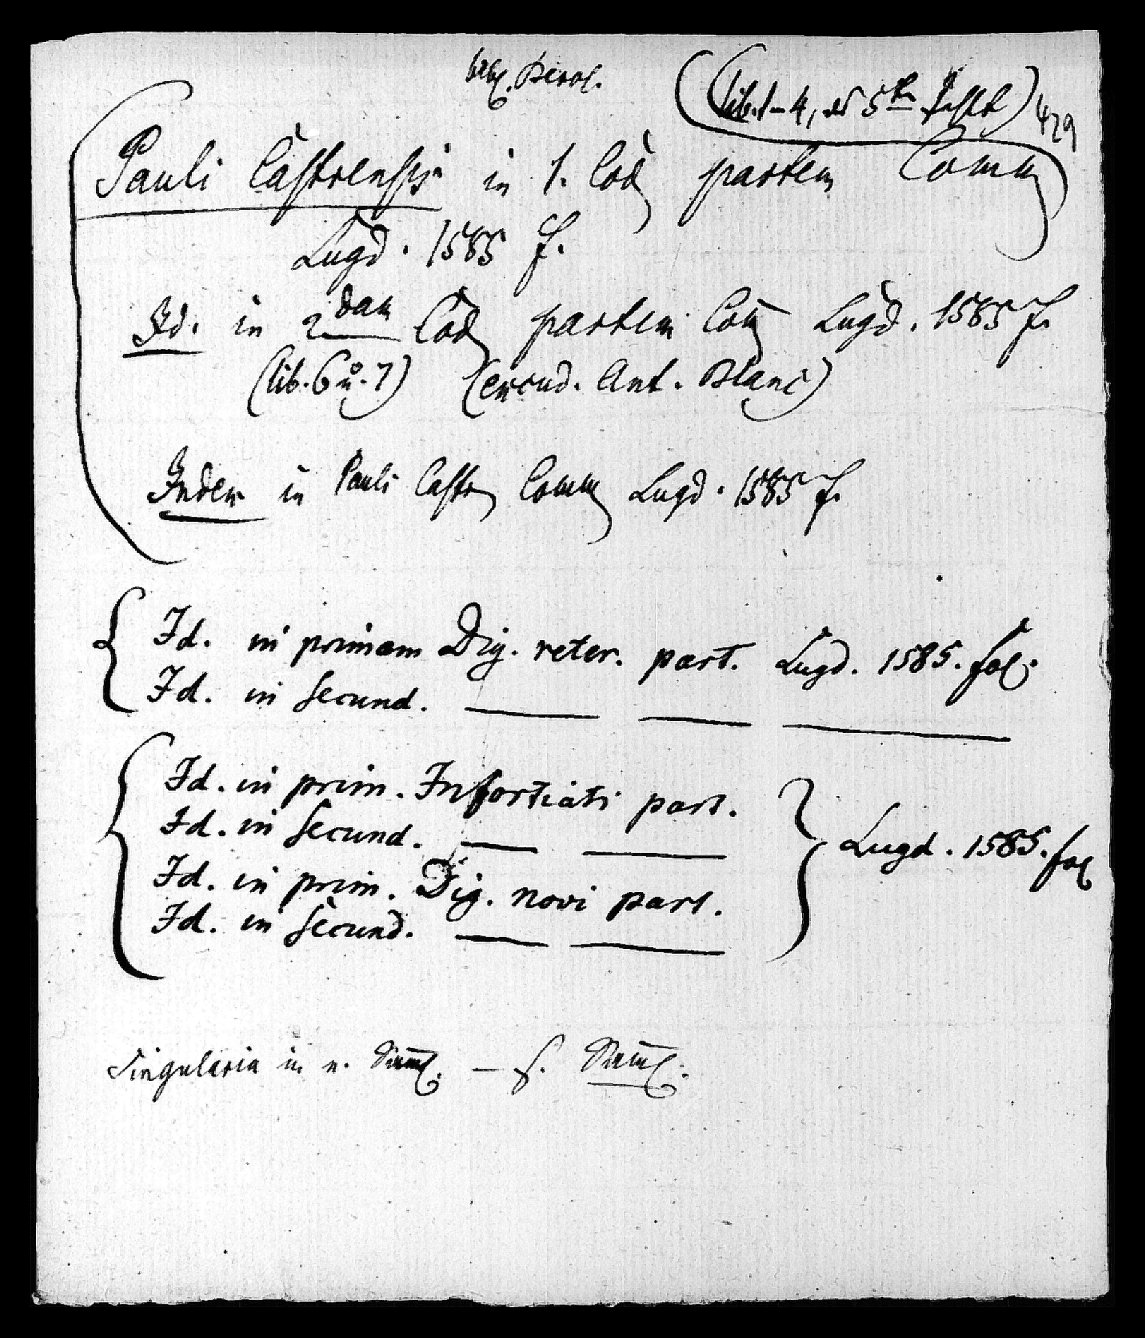 bibl. Berol.
(lib. 1–4, das 5te fehlt) 429
Pauli Castrensis in 1. Cod partem Comm
Lugd. 1585 f.
Id. in 2dam Cod partem Com Lugd. 1585 f.
(lib. 6 u. 7) (excud. Ant. Blanc)
Index in Pauli Castr Comm Lugd. 1585 f.
Id. in primam Dig. veter. part. Lugd. 1585. fol.
Id. in secund. — — —
Id. in prim. Infortiati part.
Id. in secund. — —
Id. in prim. Dig. novi part.
Id. in secund. — —
Lugd. 1585. fol
Singularia in e. Samml. — s. Samml.